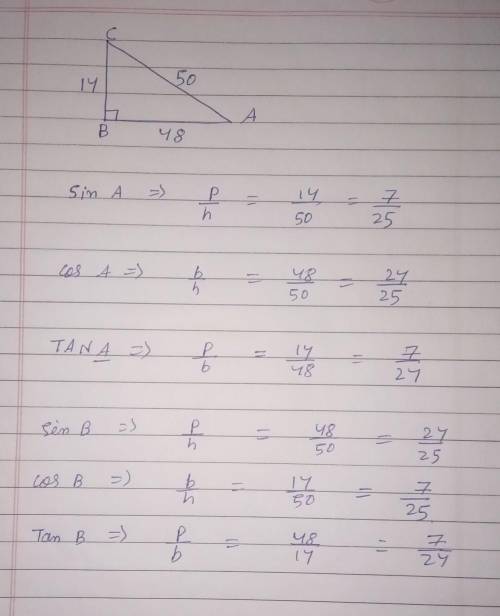 C
14 50
B 48 A
Sin A => P/h = 14/50 = 7/25
cos A => b/h = 48/50 = 24/25
TAN A => P/b = 14/48 = 7/24
sin B => P/h = 48/50 = 24/25
cos B => b/h = 14/50 = 7/25
Tan B => P/b = 48/14 = 7/24